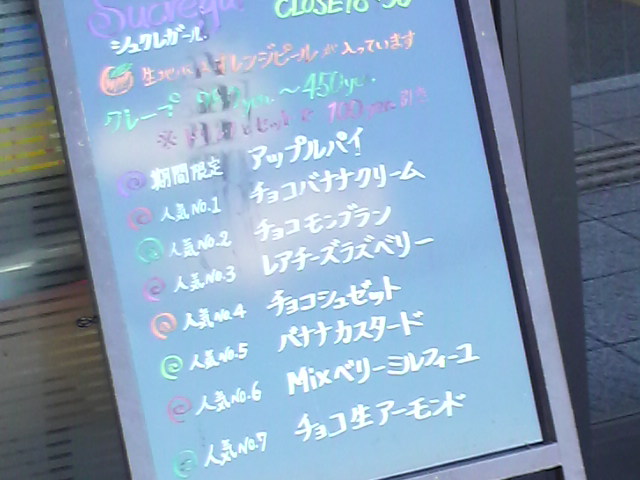 CLOSE18:30
シュクレガール.
生地にオレンジピールが入っています
クレープ ～450yen.
※ドリンクとセットで100yen引き
期間限定 アップルパイ
人気No.1 チョコバナナクリーム
人気No.2 チョコモンブラン
人気No.3 レアチーズラズベリー
人気No.4 チョコシュゼット
人気No.5 バナナカスタード
人気No.6 Mixベリーミルフィーユ
人気No.7 チョコ生アーモンド